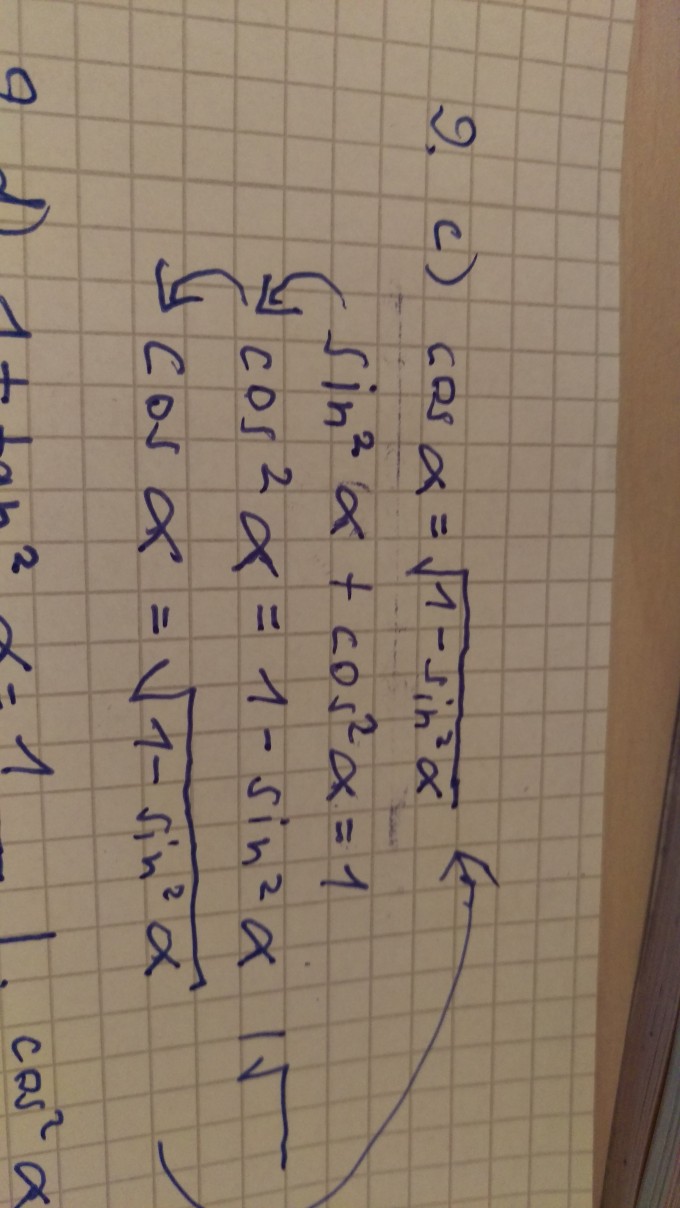 9. c) cos α = √1 - sin² α
sin² α + cos² α = 1
cos² α = 1 - sin² α |√
cos α = √1 - sin² α
9 d) 1 + tan² α = 1 | · cos² α